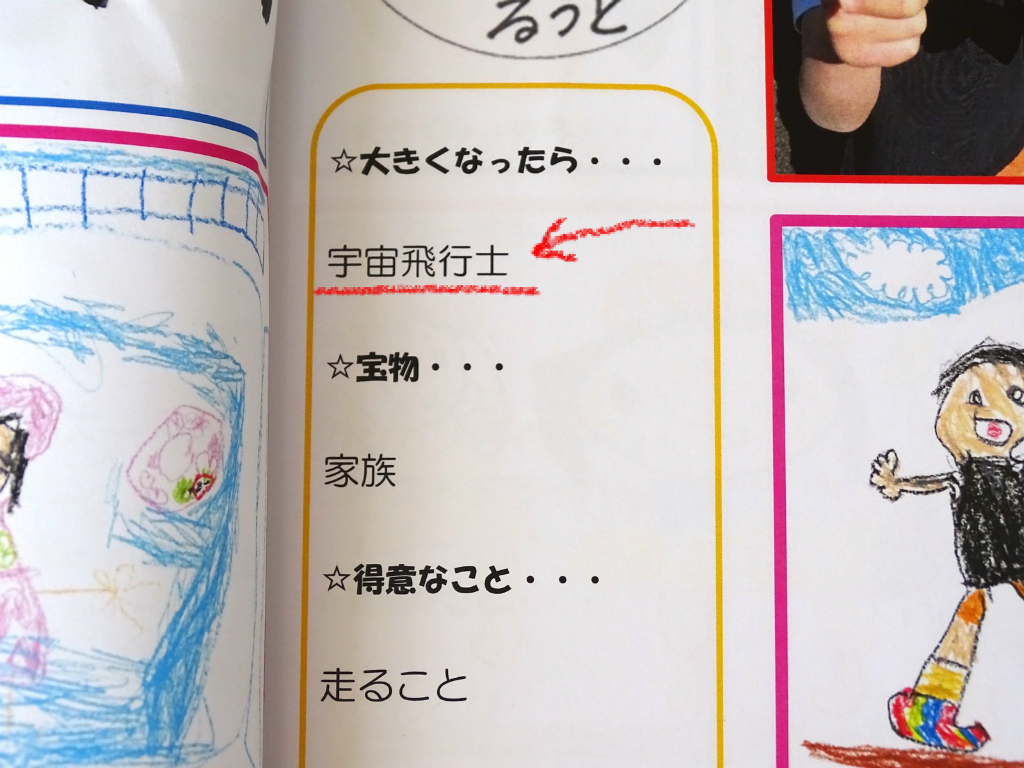 るっと
☆大きくなったら・・・
宇宙飛行士
☆宝物・・・
家族
☆得意なこと・・・
走ること